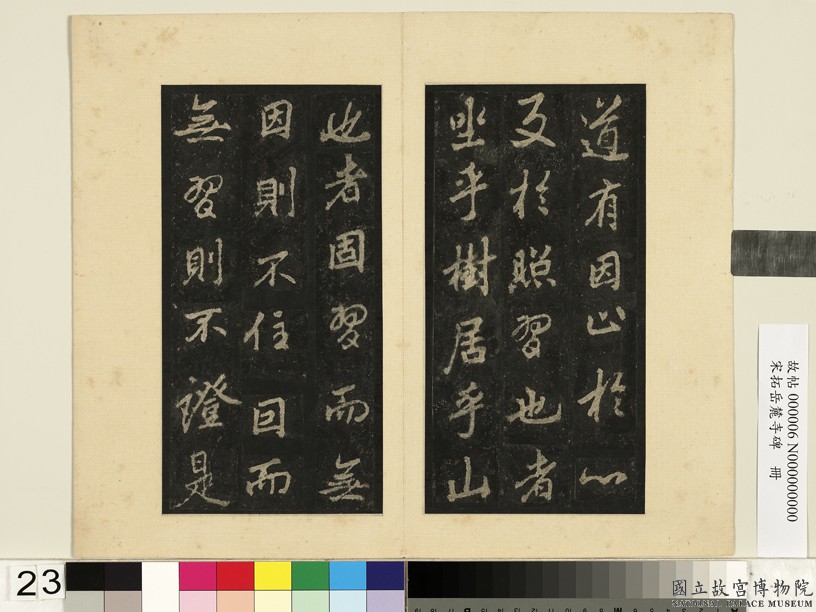 道有因止於心
及於照習也者
坐乎樹居乎山
也者固習而無
因則不住因而
無習則不證是
故帖 000006 N000000000
宋拓岳麓寺碑 冊
23
國立故宮博物院
NATIONAL PALACE MUSEUM